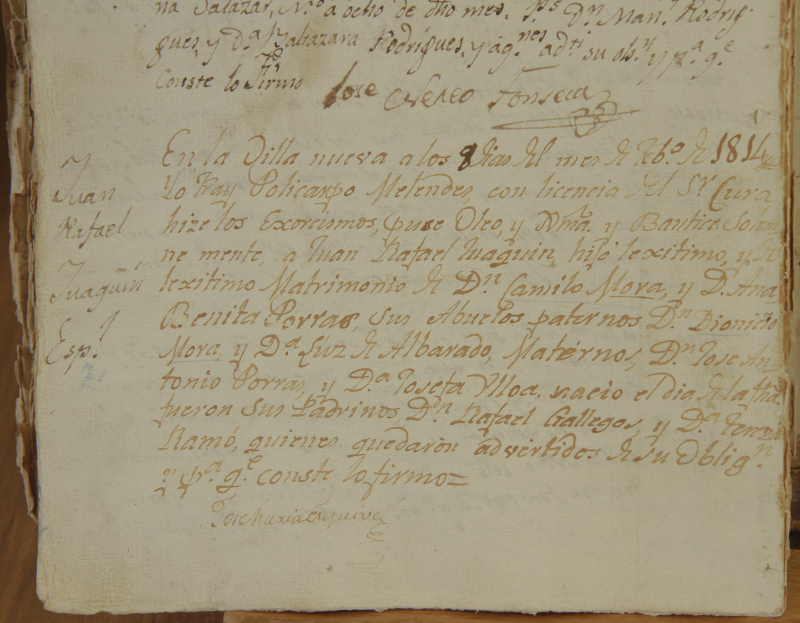 na Salazar, N.º a ocho de dho mes. P.s D.n Man.l Rodrig-
gues, y D.a Baltazara Rodrigues, y ág.nes adti su obl.n y p.a q.e
Conste lo Firmo
Jose Nereo Fonseca
Juan
Rafael
Juaquin
Esp.l
En la Villa nueva a los 8 dias del mes de Feb.o de 1814
Yo Fray Policarpo Melendes, con licencia del S.r Cura
hize los Exorcismos, puse Oleo, y Xma. y Bautice Solem
ne mente, a Juan Rafael Juaquin, hijo lexitimo, y de
lexitimo Matrimonio de D.n Camilo Mora, y D. Ana
Benita Porras, sus Abuelos paternos D.n Dionicio
Mora, y D.a Luz de Albarado, Maternos, D.n Jose An-
tonio Porras, y D.a Josefa Ulloa. nacio el dia de la fha.
fueron sus Padrinos D.n Rafael Gallegos, y D.a
Ramó, quienes quedaron advertidos de su Oblig.n
y p.a q.e conste, lo firmo=
Jose Maria Esquivel